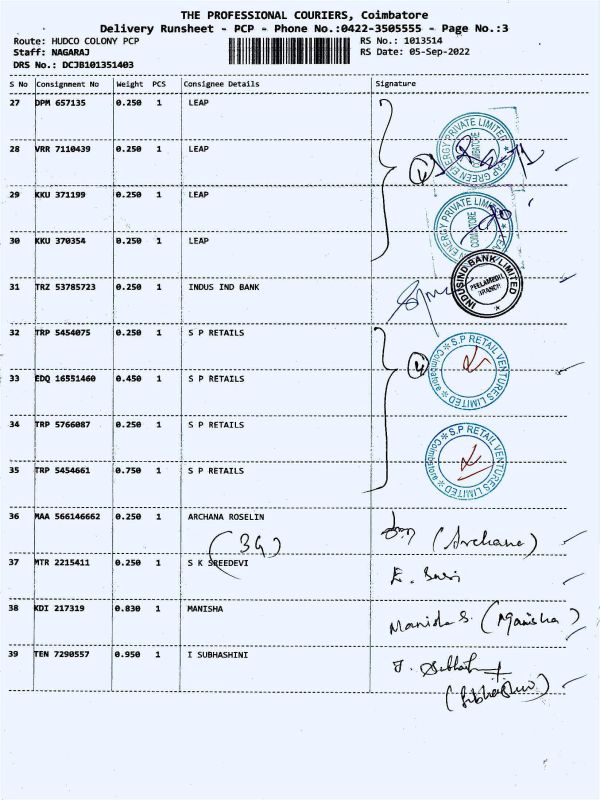 THE PROFESSIONAL COURIERS, Coimbatore
Delivery Runsheet - PCP - Phone No.:0422-3505555 - Page No.:3
Route: HUDCO COLONY PCP RS No.: 1013514
Staff: NAGARAJ RS Date: 05-Sep-2022
DRS No.: DCJB101351403
S No Consignment No Weight PCS Consignee Details Signature
27 DPM 657135 0.250 1 LEAP
28 VRR 7110439 0.250 1 LEAP
29 KKU 371199 0.250 1 LEAP
30 KKU 370354 0.250 1 LEAP
31 TRZ 53785723 0.250 1 INDUS IND BANK
INDUSIND BANK LIMITED
PEELAMEDU BRANCH
32 TRP 5454075 0.250 1 S P RETAILS
S.P RETAIL VENTURES LIMITED Coimbatore
33 EDQ 16551460 0.450 1 S P RETAILS
34 TRP 5766087 0.250 1 S P RETAILS
S.P RETAIL VENTURES LIMITED Coimbatore
35 TRP 5454661 0.750 1 S P RETAILS
36 MAA 566146662 0.250 1 ARCHANA ROSELIN
(3G) (Archana)
37 MTR 2215411 0.250 1 S K SREEDEVI
38 KDI 217319 0.830 1 MANISHA
Manisha S. (Manisha)
39 TEN 7290557 0.950 1 I SUBHASHINI
(Subhashini)